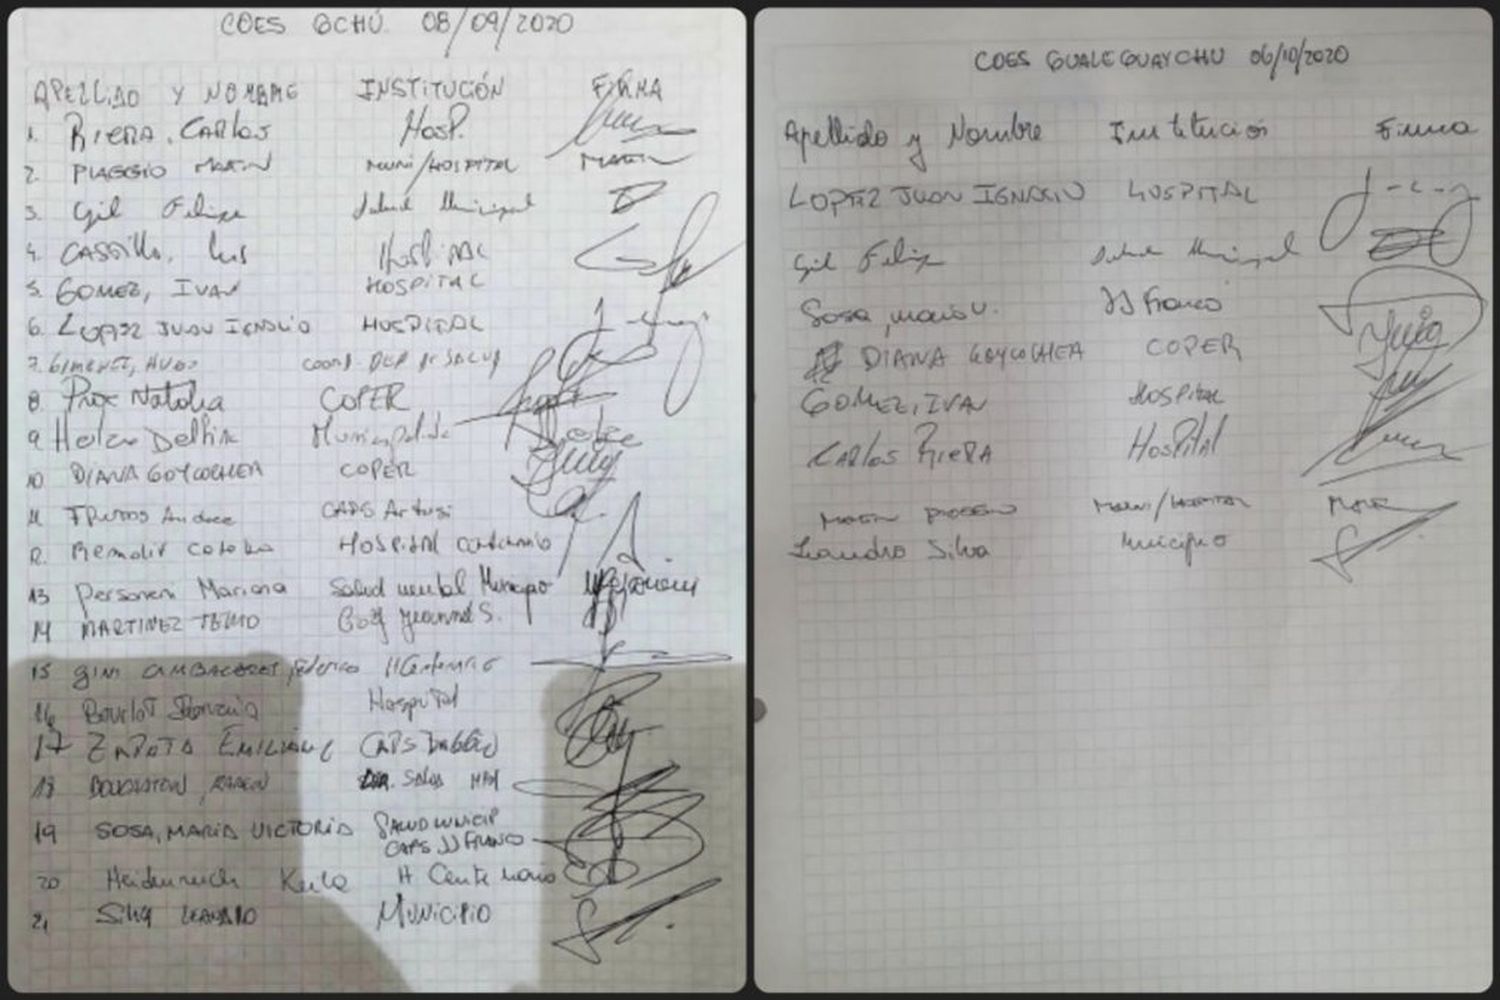 COES GCHÚ 08/09/2020
APELLIDO Y NOMBRE INSTITUCIÓN FIRMA
1. RIERA, CARLOS HOSP.
2. PIAGGIO MARTIN MUNI/HOSPITAL MARTIN
3. Gil Felipe Salud Municipal
4. CASSillo, Luis HOSPITAL
5. GOMEZ, IVAN HOSPITAL
6. LOPEZ JUAN IGNACIO HOSPITAL
7. GIMENEZ, HUGO COORD. DEP DE SALUD
8. Natalia COPER
9 Delfin Municipalidad
10 DIANA GOYCOCHEA COPER
11 FRUTOS Andrea CAPS Artusi
12. HOSPITAL centenario
13 Personeni Mariana Salud mental Municipio
14 MARTINEZ TELMO
15 gini AMBACERES, Federico H Centenario
16 Bourlot Hospital
17 ZAPATA EMILIANO CAPS
18 SALUD
19 SOSA, MARIA VICTORIA SALUD MUNICIP
CAPS JJ FRANCO
20 Heidenreich Keila H Centenario
21 Silva LEANDRO MUNICIPIO
COES GUALEGUAYCHU 06/10/2020
Apellido y Nombre Institución Firma
LOPEZ JUAN IGNACIO HOSPITAL
Gil Felipe Salud Municipal
Sosa, maria V. JJ Franco
DIANA GOYCOCHEA COPER
GOMEZ, IVAN HOSPITAL
CARLOS RIERA HOSPITAL
MARTIN PIAGGIO MUNI/HOSPITAL MARTIN
Leandro Silva Municipio